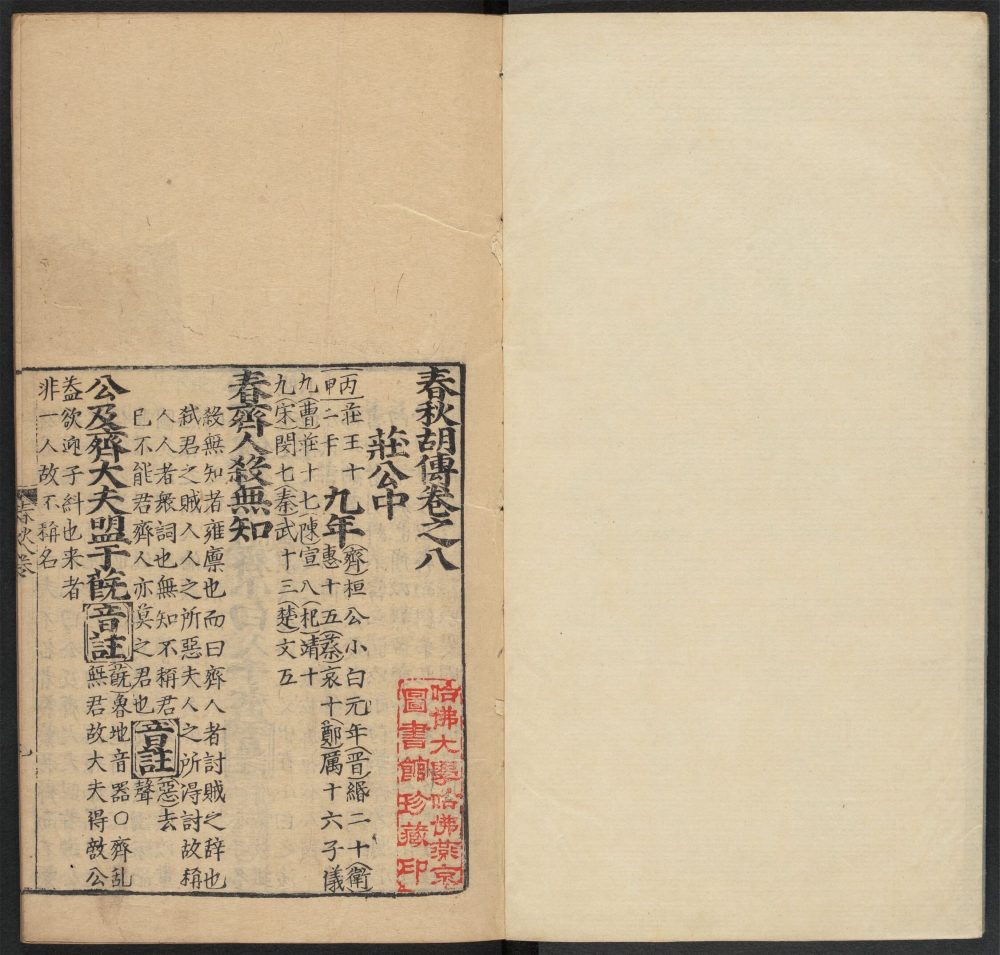 春秋胡傳卷之八
莊公中
丙莊王十
申二年
九年
齊桓公小白元年晋緡二十衛
惠十五蔡哀十鄭厲十六子儀
九曹莊十七陳宣八杞靖十
九宋閔七秦武十三楚文五
春齊人殺無知
殺無知者雍廪也而曰齊人者討賊之辞也
弑君之賊人人之所惡夫人之所得討故稱
人人者衆詞也無知不稱君
已不能君齊人亦莫之君也音註惡去
聲
公及齊大夫盟于蔇音註蔇魯地音器○齊乱
無君故大夫得敵公
盖欲迎子糾也来者
非一人故不稱名
春秋八卷
哈佛大學哈佛燕京
圖書館珍藏印